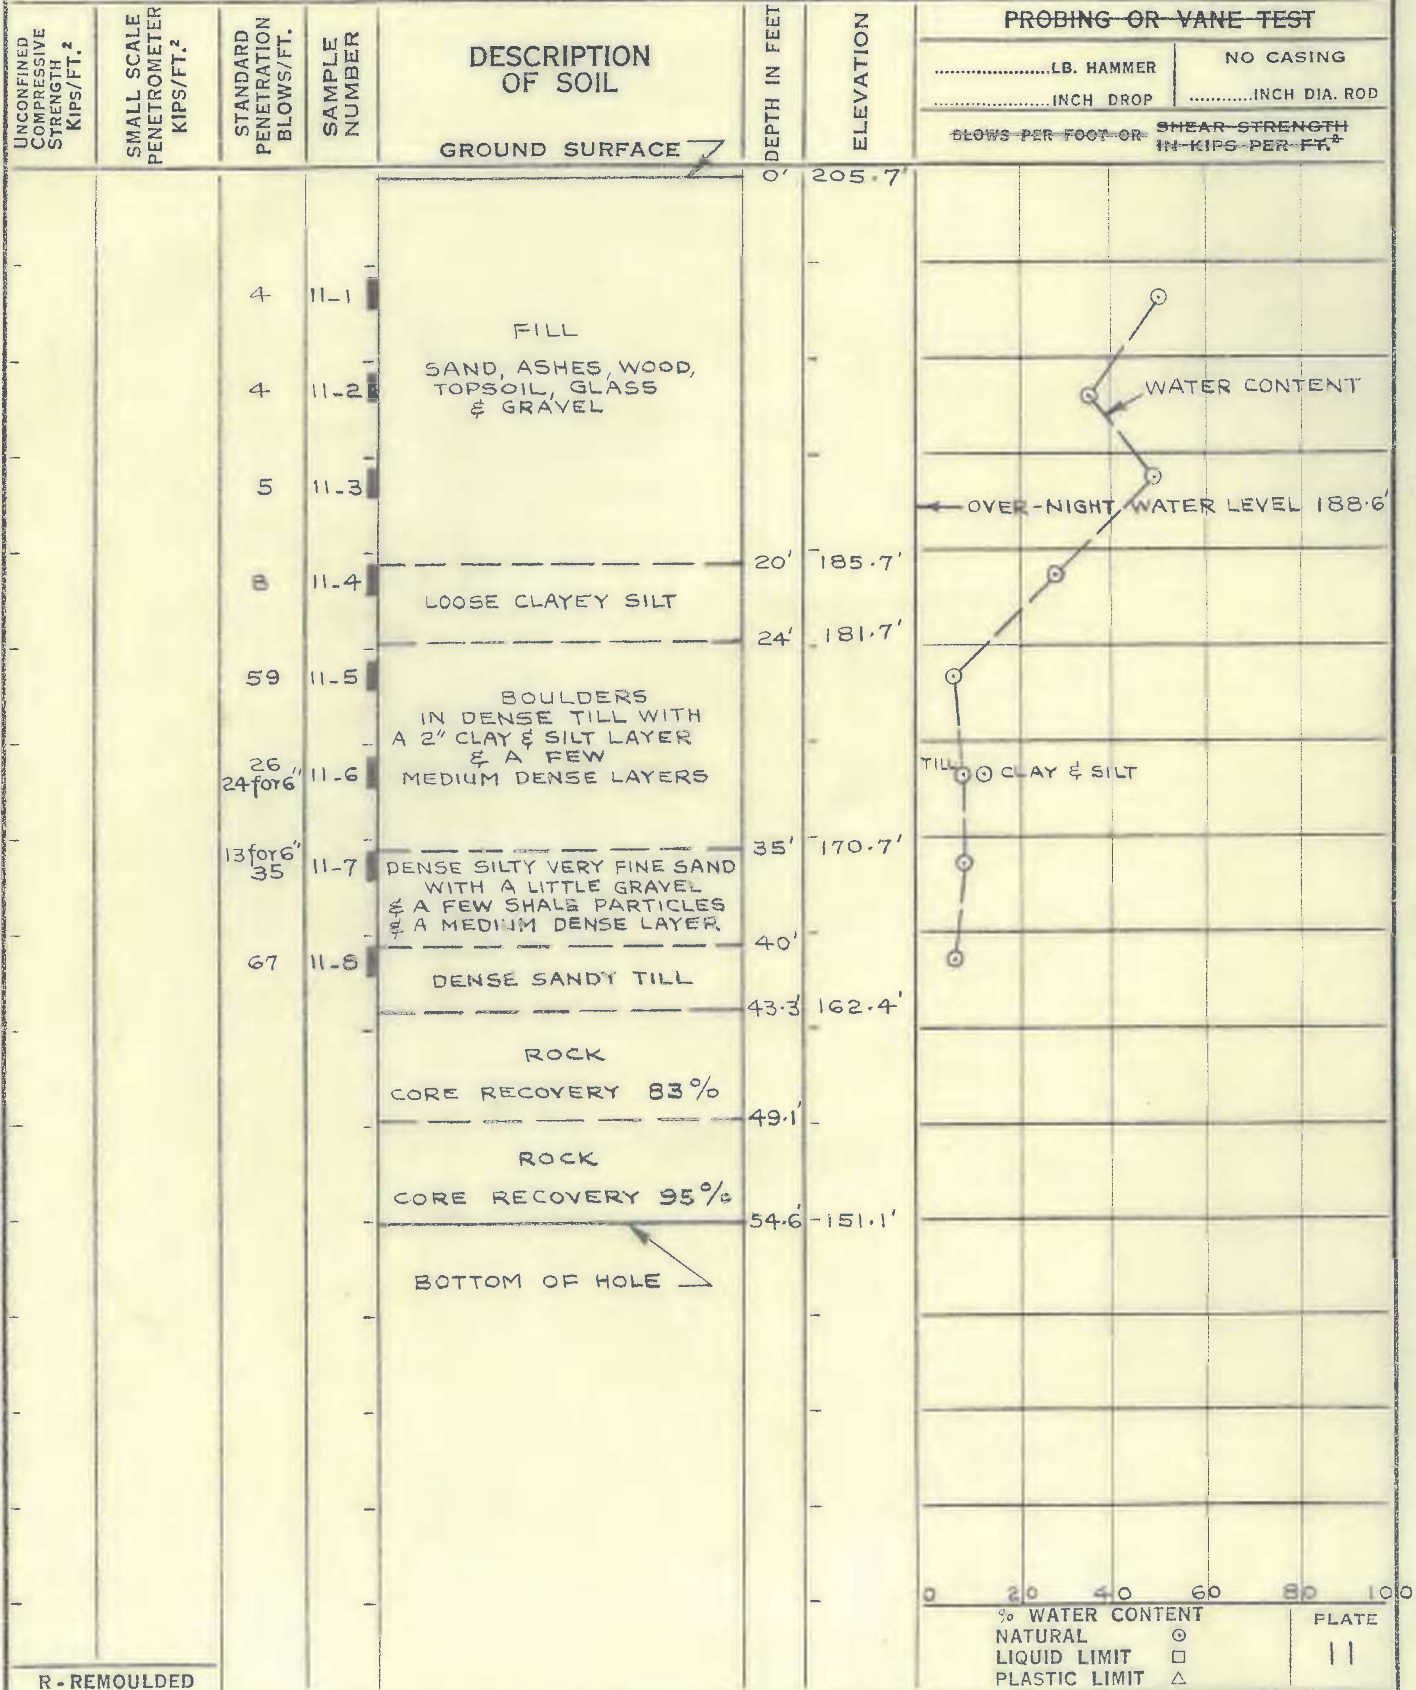 UNCONFINED
COMPRESSIVE
STRENGTH
KIPS/FT.²
SMALL SCALE
PENETROMETER
KIPS/FT.²
STANDARD
PENETRATION
BLOWS/FT.
SAMPLE
NUMBER
DESCRIPTION
OF SOIL
GROUND SURFACE
DEPTH IN FEET
ELEVATION
PROBING OR VANE TEST
....................LB. HAMMER
....................INCH DROP
NO CASING
...........INCH DIA. ROD
BLOWS PER FOOT OR SHEAR STRENGTH
IN KIPS PER FT.²
0' 205.7'
4 11-1
FILL
SAND, ASHES, WOOD,
TOPSOIL, GLASS
& GRAVEL
4 11-2
WATER CONTENT
5 11-3
OVER-NIGHT WATER LEVEL 188.6'
20' 185.7'
8 11-4
LOOSE CLAYEY SILT
24' 181.7'
59 11-5
BOULDERS
IN DENSE TILL WITH
A 2" CLAY & SILT LAYER
& A FEW
MEDIUM DENSE LAYERS
26
24 for 6" 11-6
TILL CLAY & SILT
35' 170.7'
13 for 6"
35 11-7
DENSE SILTY VERY FINE SAND
WITH A LITTLE GRAVEL
& A FEW SHALE PARTICLES
& A MEDIUM DENSE LAYER
40'
67 11-8
DENSE SANDY TILL
43.3' 162.4'
ROCK
CORE RECOVERY 83%
49.1'
ROCK
CORE RECOVERY 95%
54.6' 151.1'
BOTTOM OF HOLE
0 20 40 60 80 100
% WATER CONTENT
NATURAL ⊙
LIQUID LIMIT □
PLASTIC LIMIT △
PLATE
11
R - REMOULDED